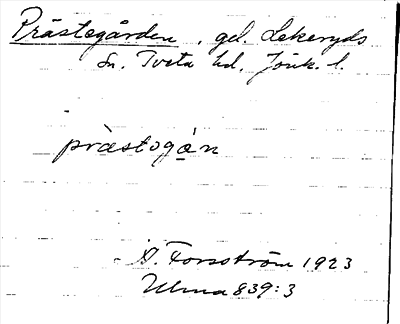 Prästegården, gd. Lekeryds
Sn. Tveta hd. Jönk. l.
præstogán
A. Forsström 1923
Ulma 839:3